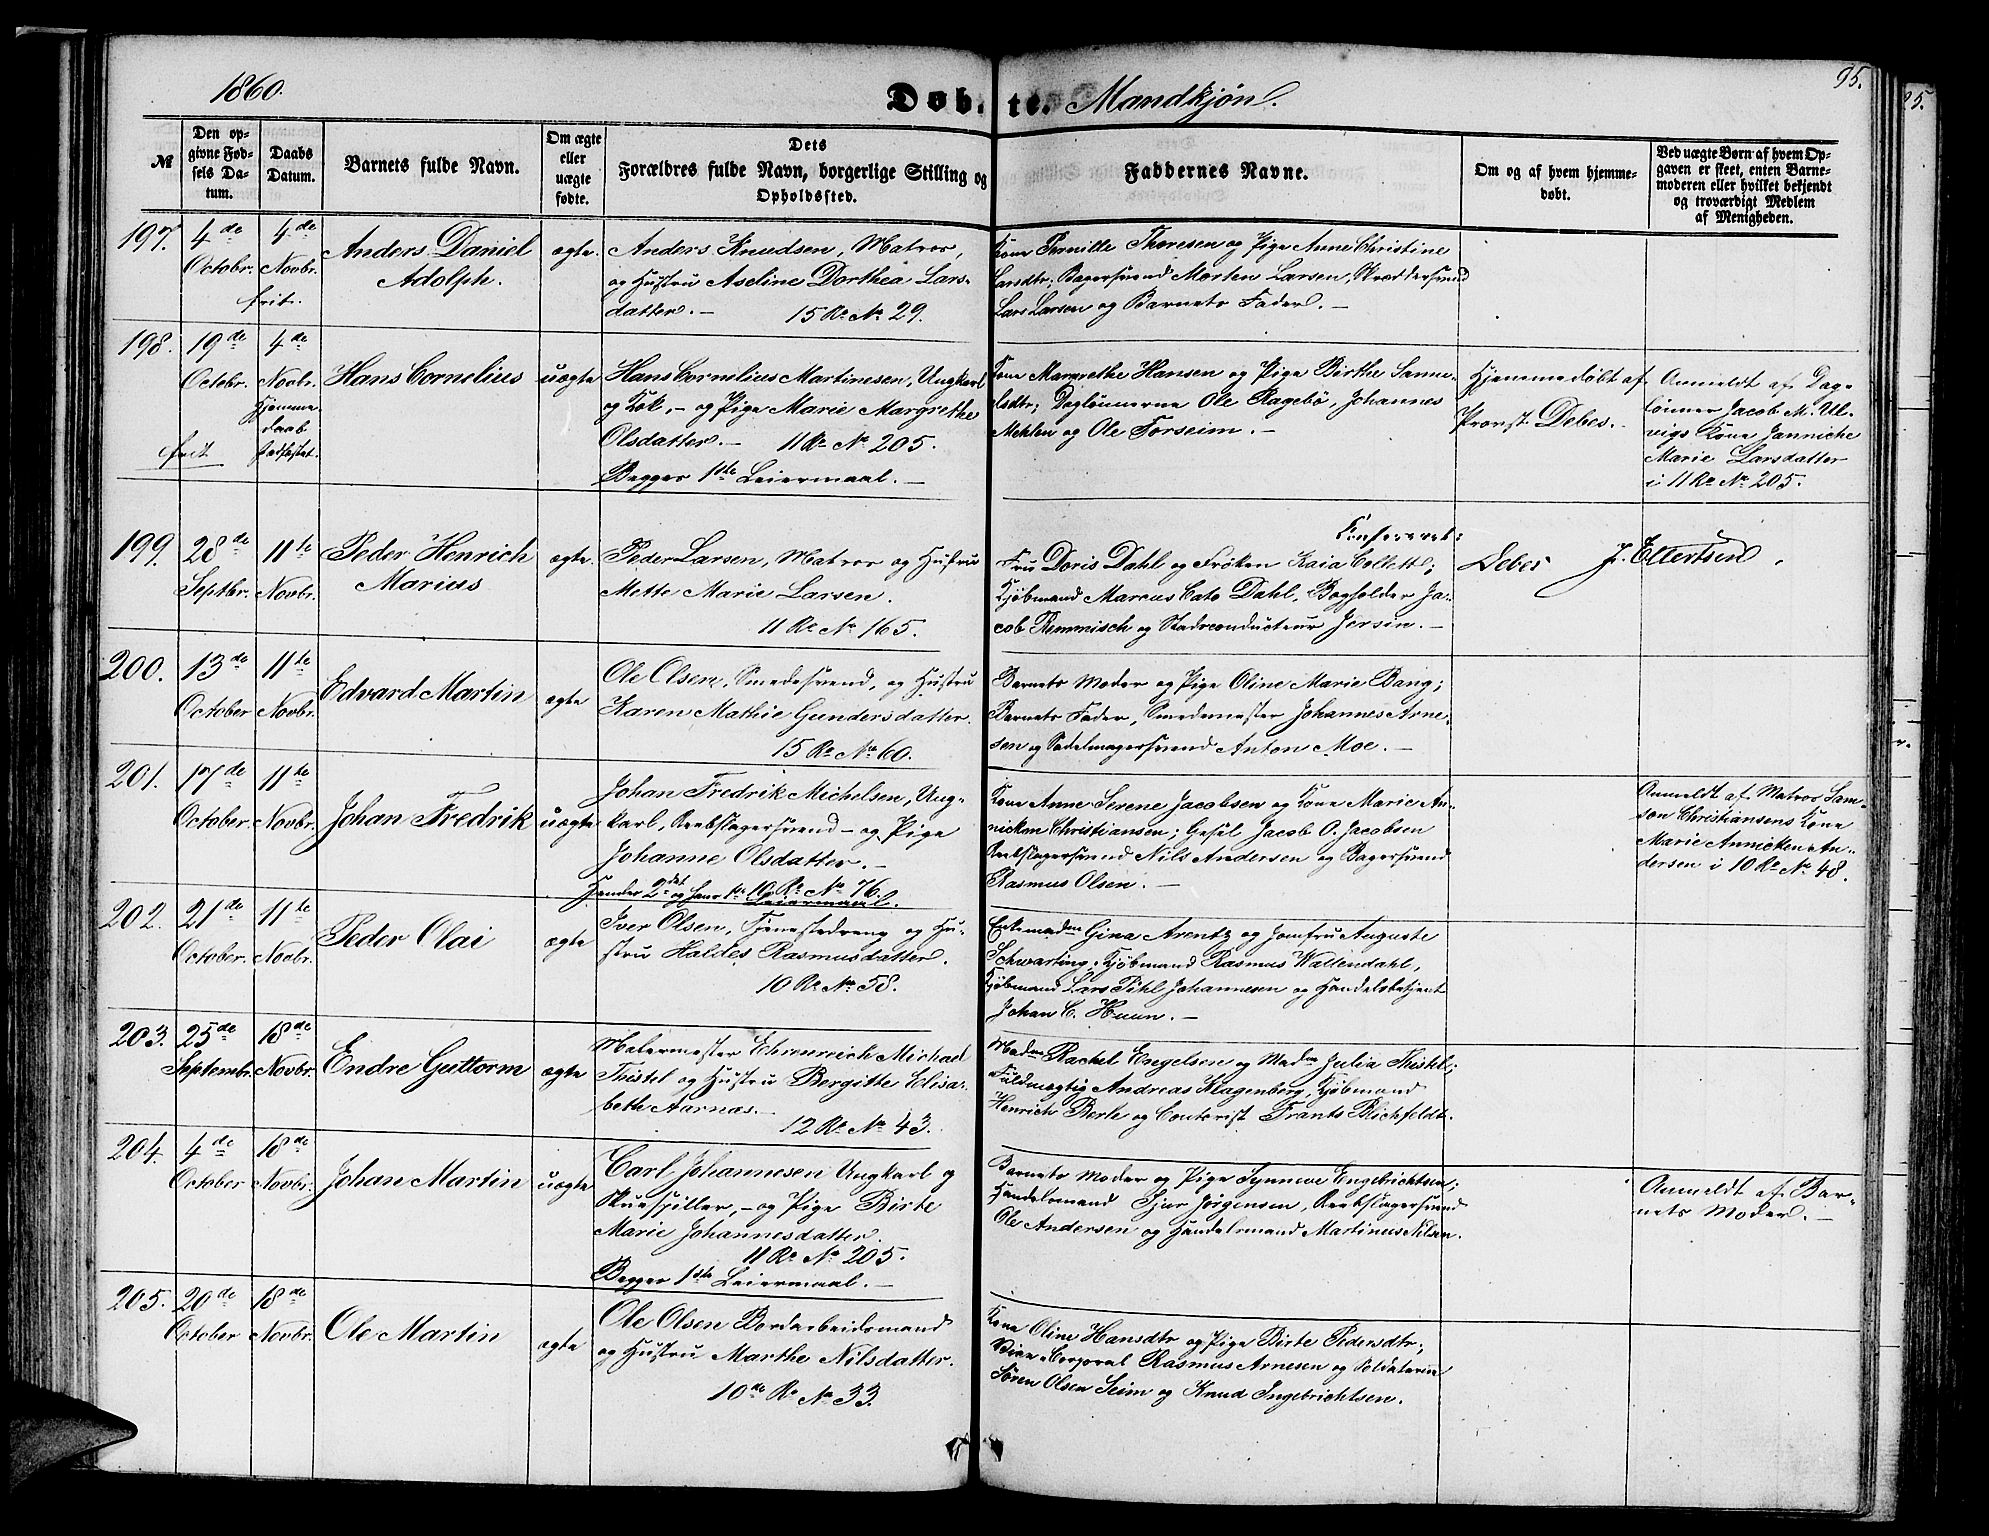 1860.
Döbte. Mandkjøn.
95.
№
Den opgivne Fødsels Datum.
Daabs Datum.
Barnets fulde Navn.
Om ægte eller uægte fødte.
Dets Forældres fulde Navn, borgerlige Stilling og Opholdssted.
Faddernes Navne.
Om og af hvem hjemmedøbt.
Ved uægte Børn af hvem Opgaven er skeet, enten Barnemoderen eller hvilket bekjendt og troværdigt Medlem af Menigheden.
197. 4de Octobr. 4de Novbr. frit.
Anders Daniel
Adolph.
ægte.
Anders Knudsen, Matros,
og Hustru Aseline Dorthea Lars-
datter. — 15 Rο No 29.
Kone Pernille Thoresen og Pige Anne Christine
Larsdtr; Bagersvend Morten Larsen, Skræddersvend
Lars Larsen og Barnets Fader. —
198. 19de Octobr. 4de Novbr.
Hjemme-
daab
stadfæstet.
frit
Hans Cornelius
uægte
Hans Cornelius Martinesen, Ungkarl
og Kok, — og Pige Marie Margrethe
Olsdatter. — 11 Rο No 205.
Begges 1ste Leiermaal. —
Kone Margrethe Hansen og Pige Birthe Samu-
elsdtr; Daglønnerne Ole Ragebø, Johannes
Mehlen og Ole Forseim. —
Hjemmedøbt af
Provst Debes. —
Anmeldt af Dag-
lønner Jacob M. Ul-
vigs Kone Janniche
Marie Larsdatter
i 11 Rο No 205.
199. 28de Septbr. 11te Novbr.
Peder Henrich
Marius
ægte.
Peder Larsen, Matros og Hustru
Mette Marie Larsen.
11 Rο No 165.
Fru Doris Dahl og Frøken Kaia Collett;
Kjøbmand Marcus Cato Dahl, Bogholder Ja-
cob Remmisch og Stadsconducteur Jersin. —
Debes
J. Ellertsen
200. 13de October 11te Novbr.
Edvard Martin
ægte
Ole Olsen, Smedesvend, og Hustru
Karen Mathie Gundersdatter.
15 Rο No 60.
Barnets Moder og Pige Oline Marie Bang;
Barnets Fader, Smedemester Johannes Arne-
sen og Sadelmagersvend Anton Moe. —
201. 17de October. 11te Novbr.
Johan Fredrik
uægte
Johan Fredrik Michelsen, Ung-
karl, Reebslagersvend — og Pige
Johanne Olsdatter. —
10 Rο No 76.
Hendes 2det og hans 1te Leiermaal.
Kone Anne Serene Jacobsen og Kone Marie An-
nicken Christiansen; Gesel Jacob O. Jacobsen
Reebslagersvend Nils Andersen og Bagersvend
Rasmus Olsen. —
Anmeldt af Matros Sam-
son Christiansens Kone
Marie Annicken An-
dersen i 10 Rο No 48.
202. 21de October. 11te Novbr.
Peder Olai
ægte
Iver Olsen, Tjenestedreng og Hu-
stru Haldes Rasmusdatter.
10 Rο No 58.
Enkemadm Gina Arentz og Jomfru Auguste
Schwarting; Kjøbmand Rasmus Wallendahl,
Kjøbmand Lars Pihl Johannesen og Handelsbetjent
Johan C. Huun. —
203. 25de Septembr. 18de Novbr.
Endre Guttorm
ægte
Malermester Ehrenreich Michael
Thistel og Hustru Bergitte Elisa-
beth Aarnæs. —
12 Rο No 43.
Madm Rachel Engelsen og Madm Julia Thistel;
Fuldmægtig Andreas Klagenberg, Kjøbmand
Henrich Berle og Contorist Frants Blichfeldt.
204. 4de October 18de Novbr.
Johan Martin
uægte
Carl Johannesen Ungkarl og
Skuespiller, — og Pige Birte
Marie Johannesdatter.
11 Rο No 205.
Begges 1ste Leiermaal. —
Barnets Moder og Pige Synneve Engebrichtsen;
Handelsmand Sjur Jørgensen, Reebslagersvend
Ole Andersen og Handelsmand Martinus Nilsen.
Anmeldt af Bar-
nets Moder. —
205. 20de October 18de Novbr.
Ole Martin
ægte
Ole Olsen Bordarbeidsmand
og Hustru Marthe Nilsdatter.
10de Rο No 33.
Kone Oline Hansdtr og Pige Birte Pedersdtr;
Vice-Corporal Rasmus Arnesen og Soldaterne
Søren Olsen Seim og Knud Ingebrichtsen.